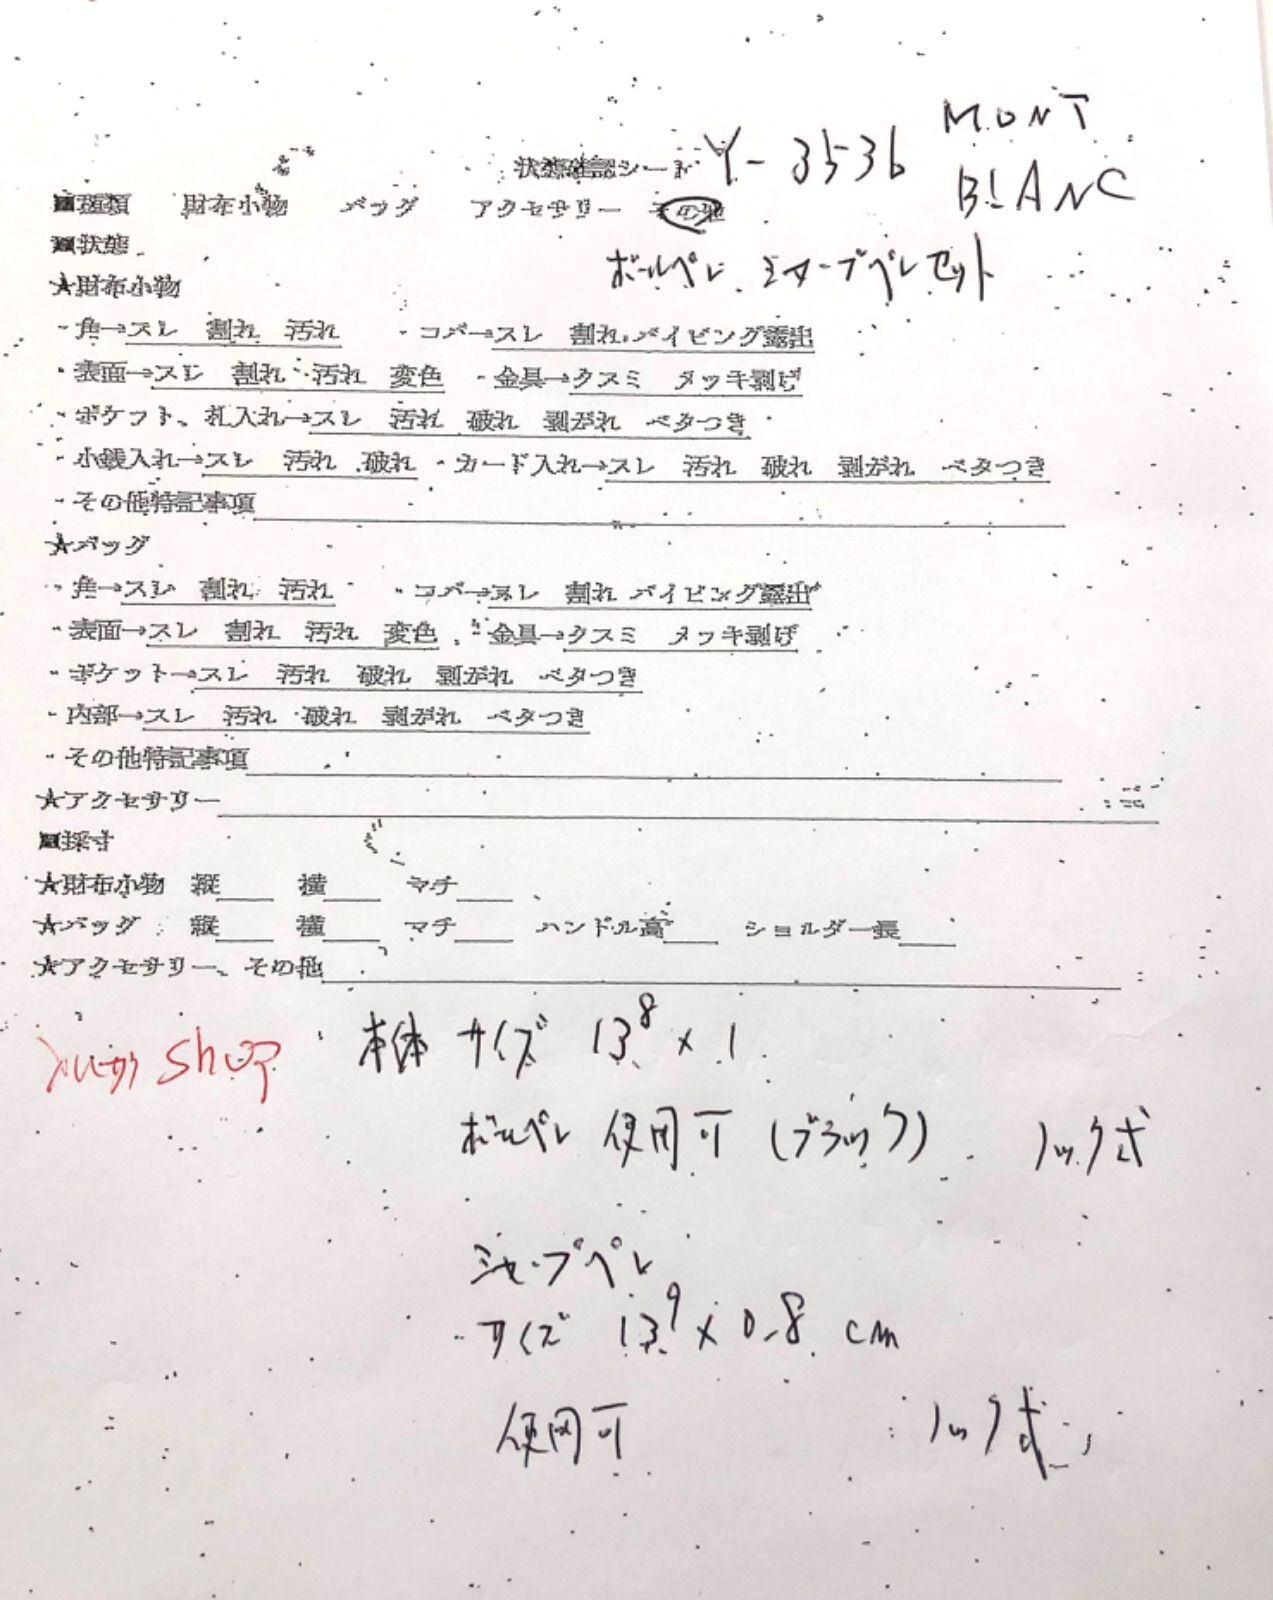 状態確認シート Y-3536 MONT
BLANC
■種類 財布小物 バッグ アクセサリー その他
■状態
ボールペン シャープペンセット
★財布小物
・角→スレ 割れ 汚れ ・コバ→スレ 割れ パイピング露出
・表面→スレ 割れ 汚れ 変色 ・金具→クスミ メッキ剥げ
・ポケット、札入れ→スレ 汚れ 破れ 剥がれ ベタつき
・小銭入れ→スレ 汚れ 破れ ・カード入れ→スレ 汚れ 破れ 剥がれ ベタつき
・その他特記事項
★バッグ
・角→スレ 割れ 汚れ ・コバ→スレ 割れ パイピング露出
・表面→スレ 割れ 汚れ 変色 ・金具→クスミ メッキ剥げ
・ポケット→スレ 汚れ 破れ 剥がれ ベタつき
・内部→スレ 汚れ 破れ 剥がれ ベタつき
・その他特記事項
★アクセサリー
■採寸
★財布小物 縦 横 マチ
★バッグ 縦 横 マチ ハンドル高 ショルダー長
★アクセサリー、その他
shop 本体 サイズ 13⁸×1
ボールペン 使用可 (ブラック) ノック式
シャープペン
サイズ 13⁹×0.8 cm
使用可 ノック式